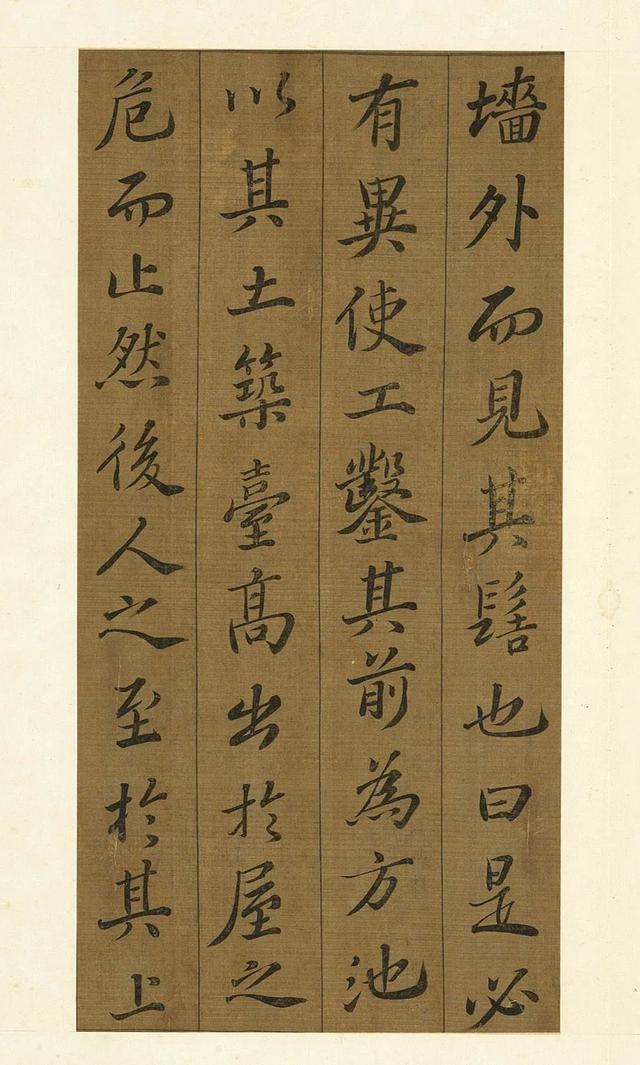 墻外而見其髻也曰是必
有異使工鑿其前為方池
以其土築臺高出於屋之
危而止然後人之至於其上